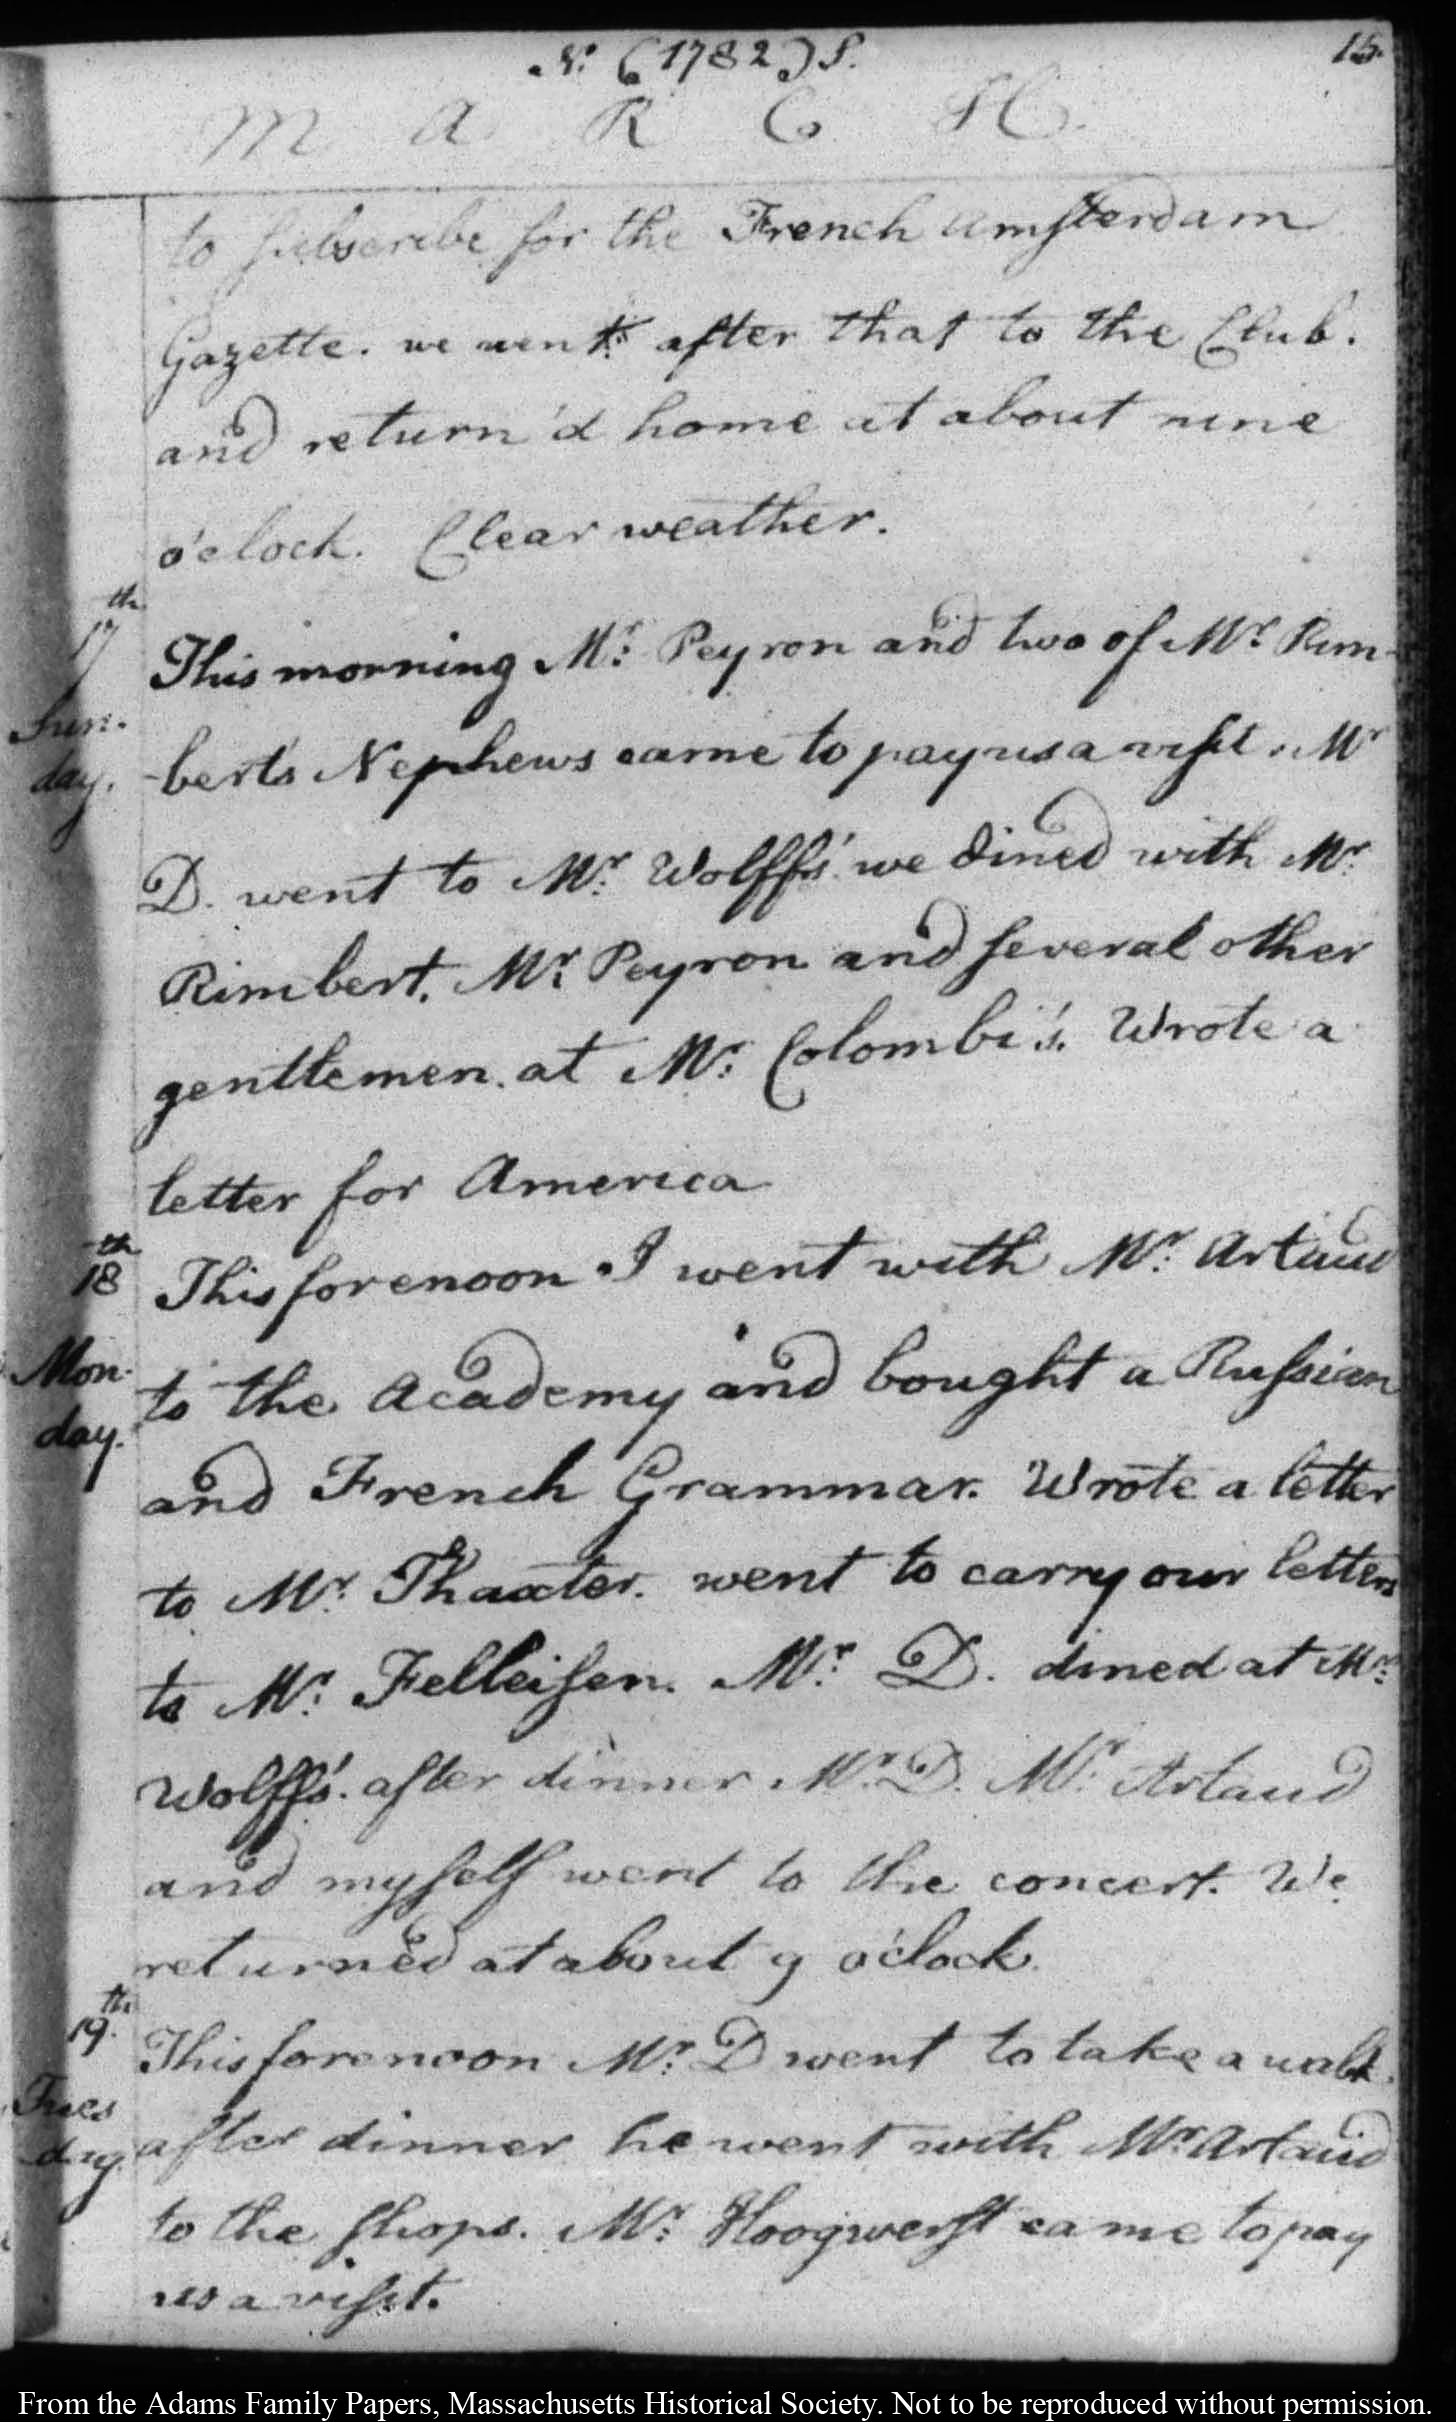 N. (1782) S.
15.
MARCH.
to subscribe for the French Amsterdam
Gazette. we went after that to the Club.
and return'd home at about nine
o'clock. Clear weather.
17th Sunday.
This morning Mr. Peyron and two of Mr. Rim-
-bert's Nephews came to pay us a visit. Mr
D. went to Mr. Wolff's. we dined with Mr.
Rimbert, Mr. Peyron and several other
gentlemen. at Mr. Colombi's. Wrote a
letter for America
18th Mon-
day.
This forenoon I went with Mr. Artaud
to the Academy and bought a Russian
and French Grammar. Wrote a letter
to Mr. Thaxter. went to carry our letters
to Mr. Felleisen. Mr. D. dined at Mr.
Wolff's. after dinner Mr. D. Mr. Artaud
and myself went to the concert. We
returned at about 9 o'clock.
19th. Tues
day.
This forenoon Mr. D went to take a walk.
after dinner he went with Mr. Artaud
to the shops. Mr. Hoogwerst came to pay
us a visit.
From the Adams Family Papers, Massachusetts Historical Society. Not to be reproduced without permission.